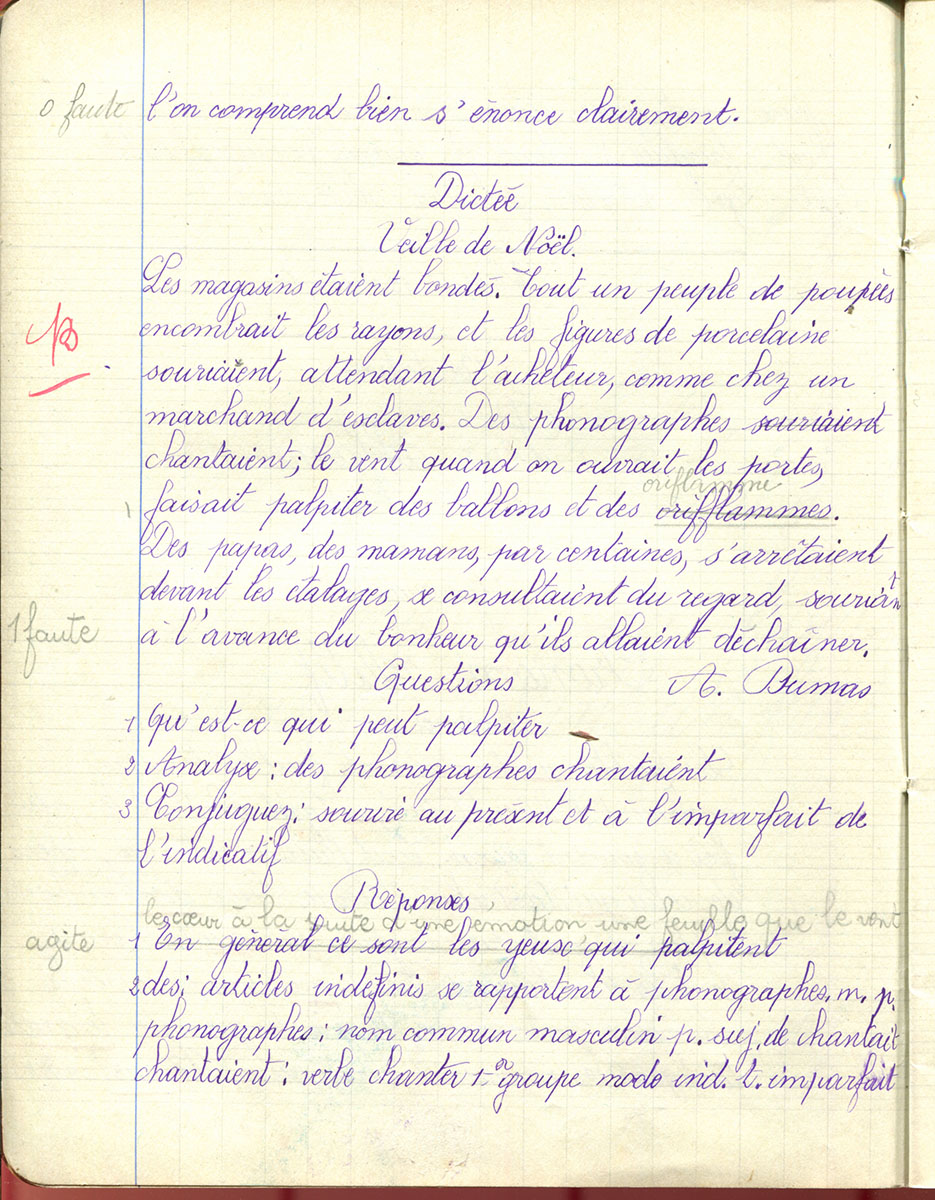 0 faute l'on comprend bien s'énonce clairement.
Dictée
Veille de Noël.
Les magasins étaient bondés. Tout un peuple de poupées
encombrait les rayons, et les figures de porcelaine
souriaient, attendant l'acheteur, comme chez un
marchand d'esclaves. Des phonographes souriaient
chantaient; le vent quand on ouvrait les portes,
oriflamme
1 faisait palpiter des ballons et des orifflammes.
Des papas, des mamans, par centaines, s'arrêtaient
devant les étalages, se consultaient du regard, souriant
1 faute à l'avance du bonheur qu'ils allaient déchaîner.
Questions A. Dumas
1 Qu'est-ce qui peut palpiter
2 Analyse : des phonographes chantaient
3 Conjuguez : sourire au présent et à l'imparfait de
l'indicatif
Réponses
le cœur à la suite d'une émotion une feuille que le vent
agite
1 En général ce sont les yeuse qui palpitent
2 des; articles indéfinis se rapportent à phonographes. m. p.
phonographes : nom commun masculin p. suj. de chantait
chantaient : verbe chanter 1er groupe mode ind. t. imparfait